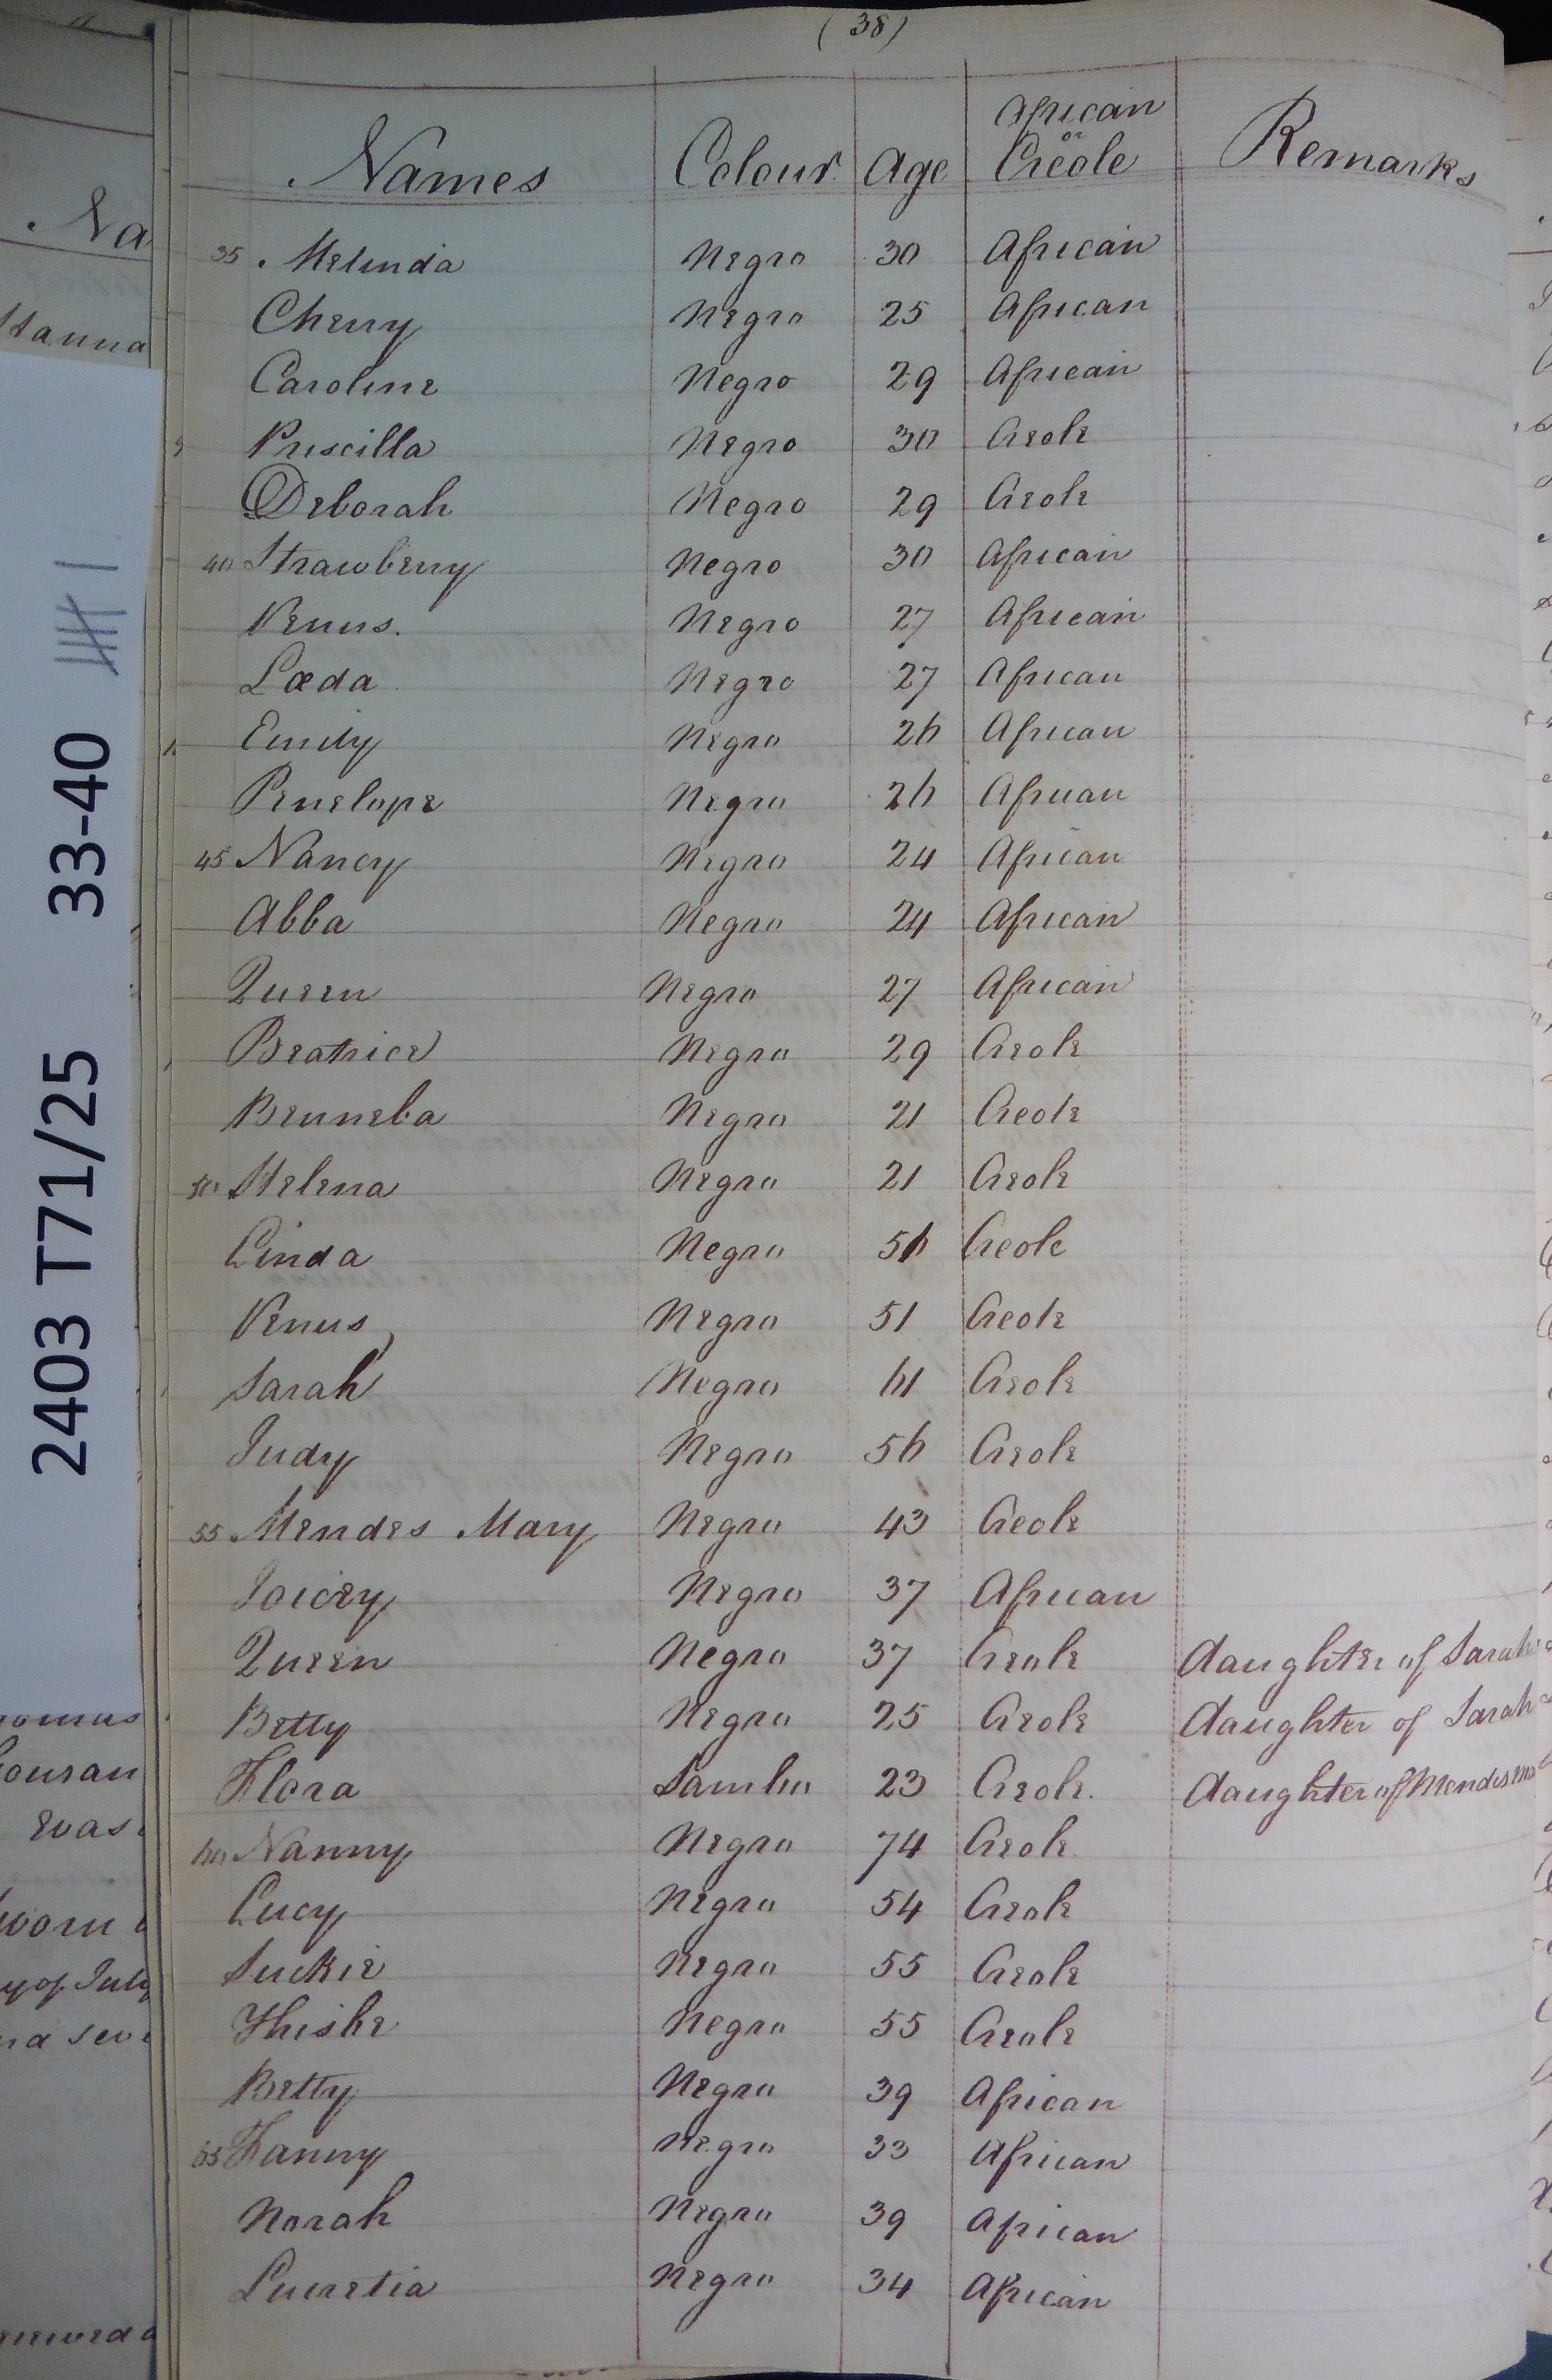 (38)
Names Colour Age African or Creole Remarks
35 Melinda Negro 30 African
Cherry Negro 25 African
Caroline Negro 29 African
Priscilla Negro 30 Creole
Deborah Negro 29 Creole
40 Strawberry Negro 30 African
Venus. Negro 27 African
Læda Negro 27 African
Emily Negro 26 African
Penelope Negro 26 African
45 Nancy Negro 24 African
Abba Negro 24 African
Queen Negro 27 African
Beatrice Negro 29 Creole
Benneba Negro 21 Creole
50 Helena Negro 21 Creole
Linda Negro 56 Creole
Venus Negro 51 Creole
Sarah Negro 61 Creole
Judy Negro 56 Creole
55 Mendes Mary Negro 43 Creole
Joicey Negro 37 African
Queen Negro 37 Creole daughter of Sarah
Betty Negro 25 Creole daughter of Sarah
Flora Sambo 23 Creole. daughter of Mendes
60 Nanny Negro 74 Creole
Lucy Negro 54 Creole
Suckie Negro 55 Creole
Thisbe Negro 55 Creole
Betty Negro 39 African
65 Fanny Negro 33 African
Norah Negro 39 African
Lucretia Negro 34 African
2403 T71/25 33-40
Na
Hanna
y of July